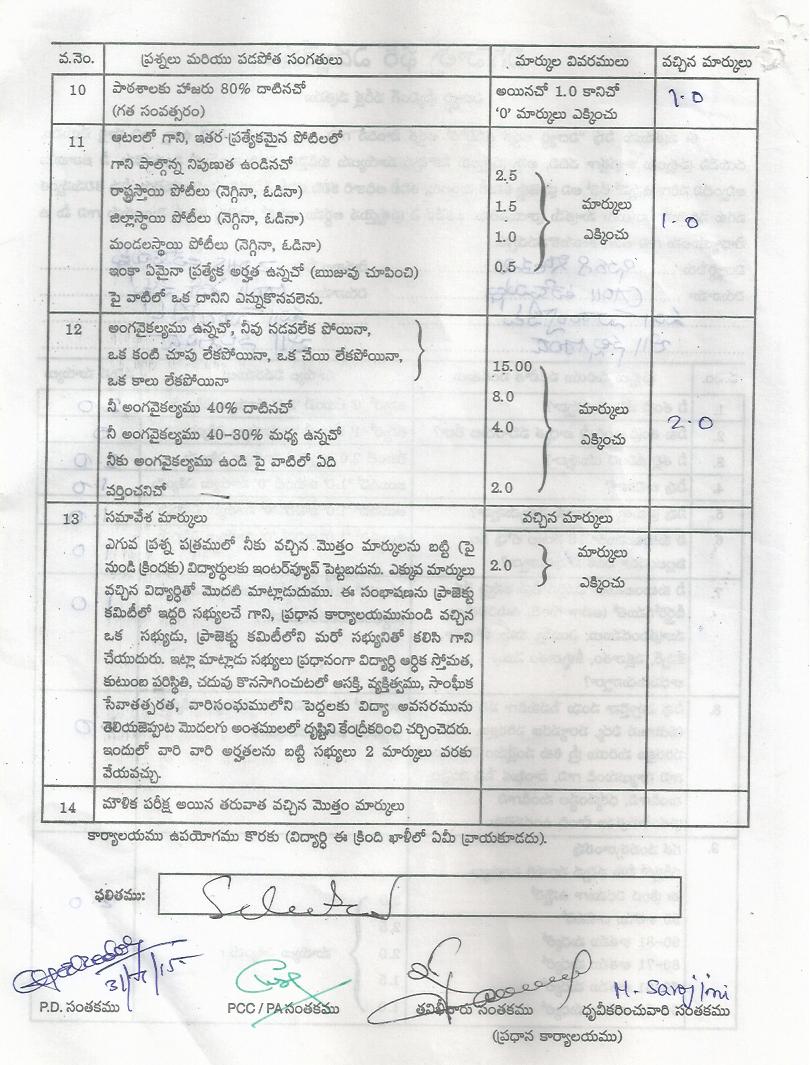 వ.నెం. ప్రశ్నలు మరియు పడపోత సంగతులు మార్కుల వివరములు వచ్చిన మార్కులు
10 పాఠశాలకు హాజరు 80% దాటినచో అయినచో 1.0 కానిచో 1.0
(గత సంవత్సరం) '0' మార్కులు ఎక్కించు
11 ఆటలలో గాని, ఇతర ప్రత్యేకమైన పోటిలలో
గాని పాల్గొన్న నిపుణుత ఉండినచో 2.5
రాష్ట్రస్తాయి పోటీలు (నెగ్గినా, ఓడినా) 1.5 మార్కులు
జిల్లాస్థాయి పోటీలు (నెగ్గినా, ఓడినా) 1.0 ఎక్కించు 1.0
మండలస్థాయి పోటీలు (నెగ్గినా, ఓడినా)
ఇంకా ఏమైనా ప్రత్యేక అర్హత ఉన్నచో (ఋజువు చూపించి) 0.5
పై వాటిలో ఒక దానిని ఎన్నుకొనవలెను.
12 అంగవైకల్యము ఉన్నచో, నీవు నడవలేక పోయినా,
ఒక కంటి చూపు లేకపోయినా, ఒక చేయి లేకపోయినా,
ఒక కాలు లేకపోయినా 15.00
నీ అంగవైకల్యము 40% దాటినచో 8.0 మార్కులు
నీ అంగవైకల్యము 40-30% మధ్య ఉన్నచో 4.0 ఎక్కించు 2.0
నీకు అంగవైకల్యము ఉండి పై వాటిలో ఏది
వర్తించనిచో 2.0
13 సమావేశ మార్కులు వచ్చిన మార్కులు
ఎగువ ప్రశ్న పత్రములో నీకు వచ్చిన మొత్తం మార్కులను బట్టి (పై 2.0 మార్కులు
నుండి క్రిందకు) విద్యార్ధులకు ఇంటర్వ్యూవ్ పెట్టబడును. ఎక్కువ మార్కులు ఎక్కించు
వచ్చిన విద్యార్థితో మొదటి మాట్లాడుదుము. ఈ సంభాషణను ప్రాజెక్టు
కమిటీలో ఇద్దరి సభ్యులచే గాని, ప్రధాన కార్యాలయమునుండి వచ్చిన
ఒక సభ్యుడు, ప్రాజెక్టు కమిటీలోని మరో సభ్యునితో కలిసి గాని
చేయుదురు. ఇట్లా మాట్లాడు సభ్యులు ప్రధానంగా విద్యార్ధి ఆర్ధిక స్తోమత,
కుటుంబ పరిస్థితి, చదువు కొనసాగించుటలో ఆసక్తి, వ్యక్తిత్వము, సాంఘీక
సేవాతత్పరత, వారిసంఘములోని పెద్దలకు విద్యా అవసరమును
తెలియజెప్పుట మొదలగు అంశములలో దృష్టిని కేంద్రీకరించి చర్చించెదరు.
ఇందులో వారి వారి అర్హతలను బట్టి సభ్యులు 2 మార్కులు వరకు
వేయవచ్చు.
14 మౌళిక పరీక్ష అయిన తరువాత వచ్చిన మొత్తం మార్కులు
కార్యాలయము ఉపయోగము కొరకు (విద్యార్థి ఈ క్రింది ఖాళీలో ఏమీ వ్రాయకూడదు).
ఫలితము: Selected
P.D. సంతకము PCC / PA సంతకము తనిఖీదారు సంతకము ధృవీకరించువారి సంతకము
M. Sarojini
(ప్రధాన కార్యాలయము)